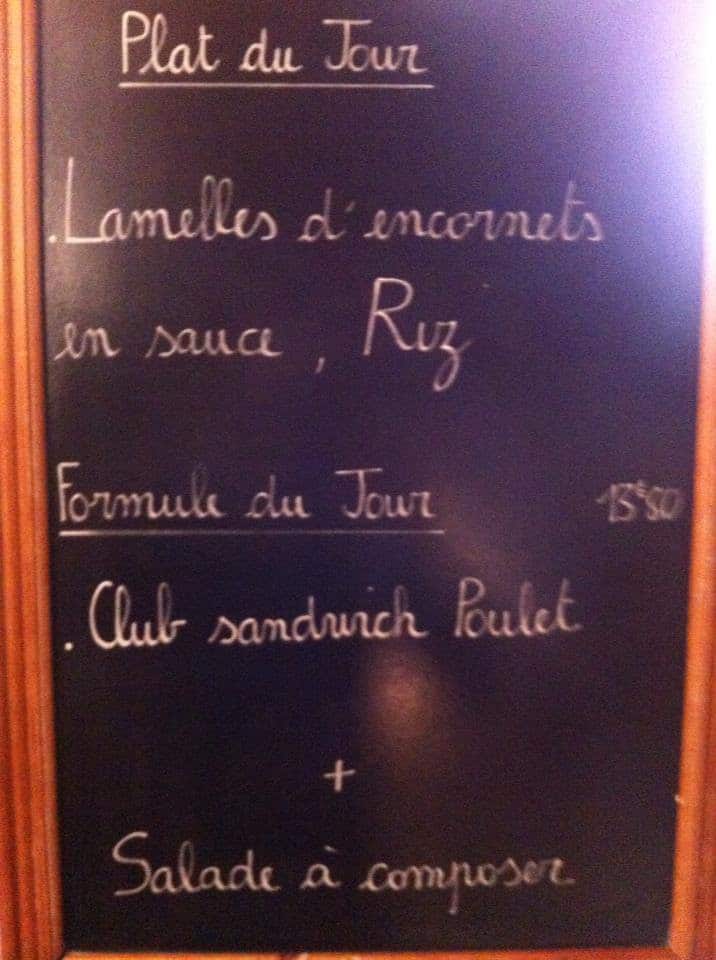 Plat du Jour
. Lamelles d'encornets
en sauce, Riz
Formule du Jour 13€80
. Club sandwich Poulet
+
Salade à composer